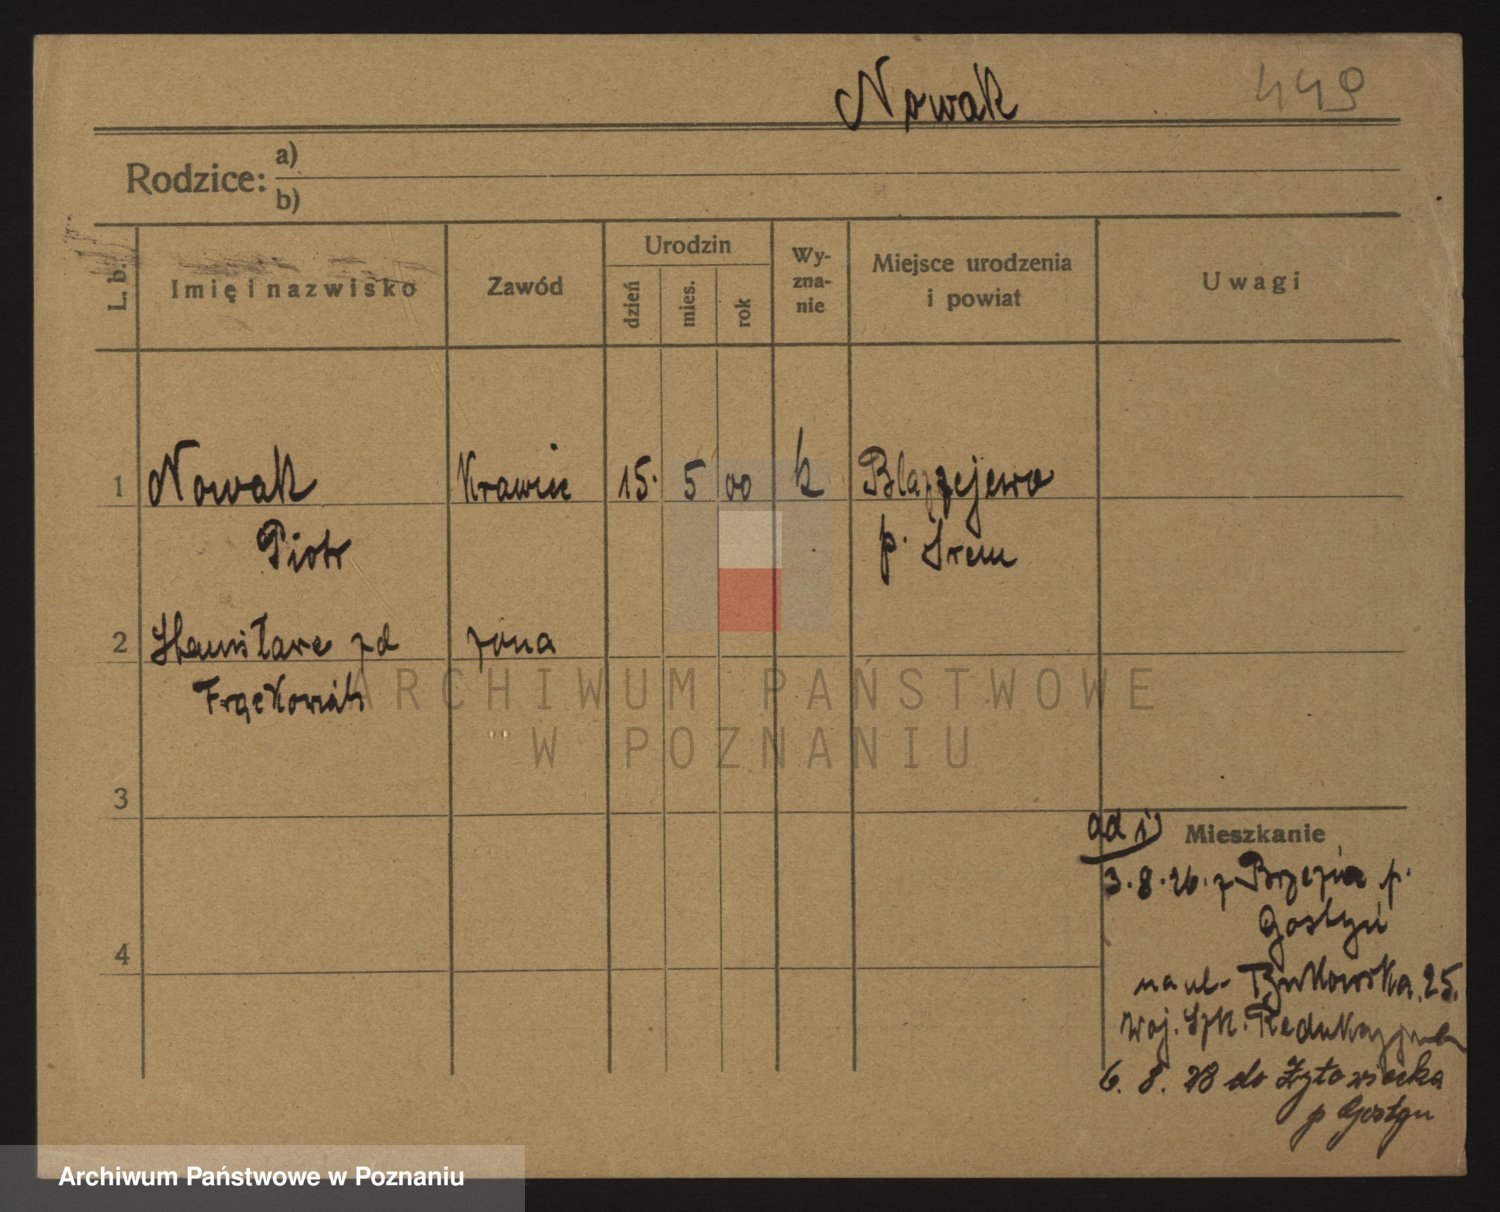 Nowak 449
Rodzice: a)
b)
L. b. Imię i nazwisko Zawód Urodzin dzień mies. rok Wy-zna-nie Miejsce urodzenia i powiat Uwagi
1 Nowak Krawiec 15. 5 00 k Blazzejewo
Piotr p. Srem
2 Stanisława zd żona
Frąckowiak
ARCHIWUM PAŃSTWOWE
W POZNANIU
3
ad 1) Mieszkanie
3.8.26. z Brzezia p.
Gostyń
4
na ul. Bukowska 25.
Woj. Szk.
6. 8. 28 do
p Gostyn
Archiwum Państwowe w Poznaniu